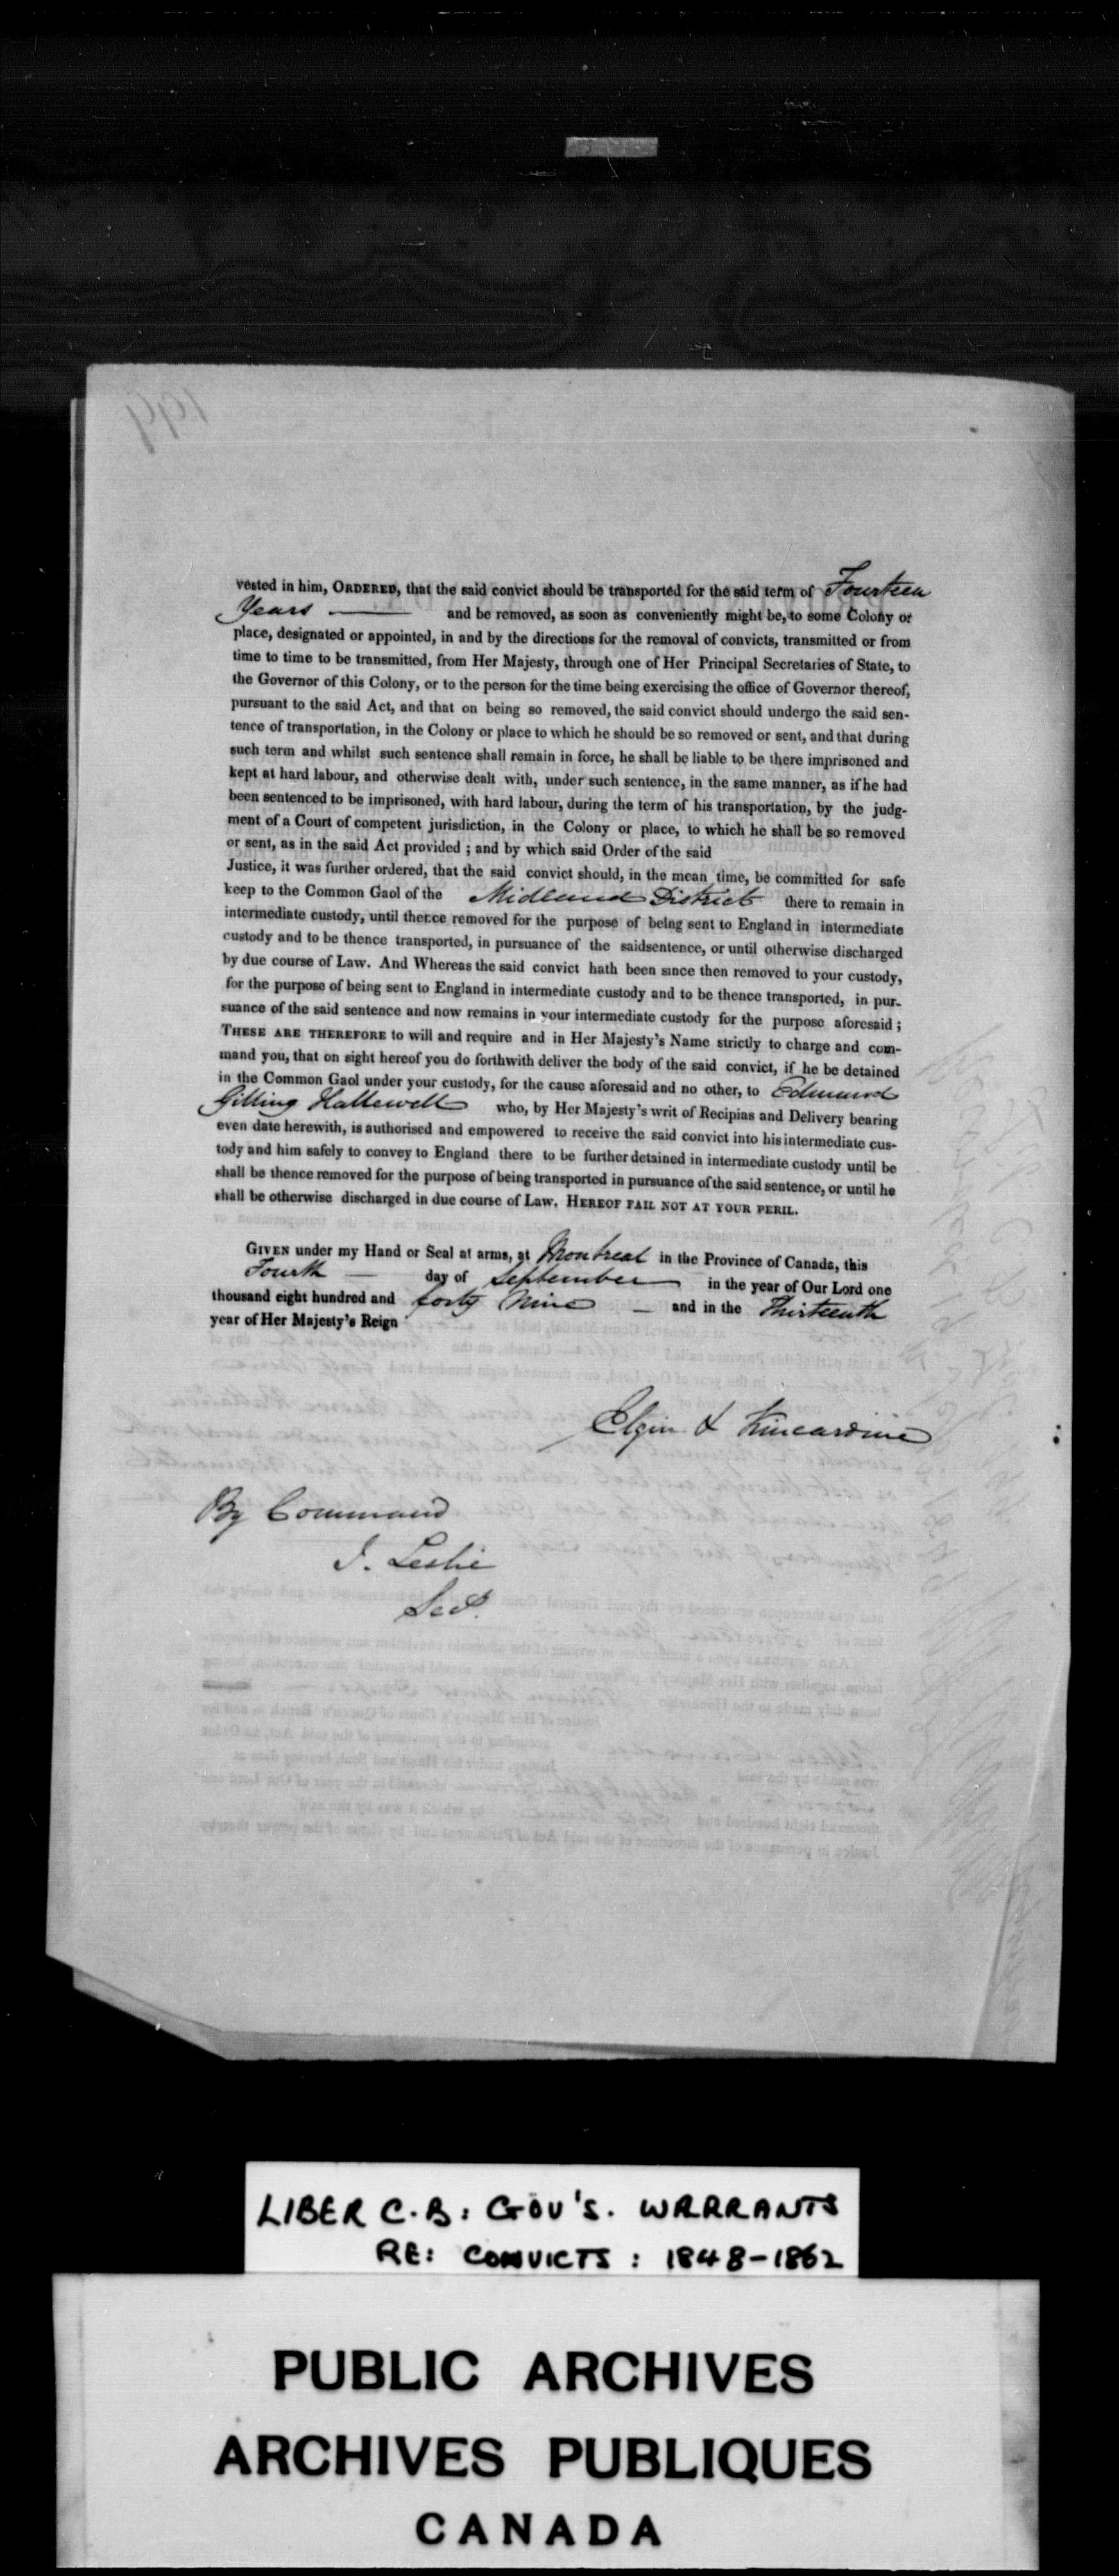 199
vested in him, ORDERED, that the said convict should be transported for the said term of Fourteen
Years — and be removed, as soon as conveniently might be, to some Colony or
place, designated or appointed, in and by the directions for the removal of convicts, transmitted or from
time to time to be transmitted, from Her Majesty, through one of Her Principal Secretaries of State, to
the Governor of this Colony, or to the person for the time being exercising the office of Governor thereof,
pursuant to the said Act, and that on being so removed, the said convict should undergo the said sen-
tence of transportation, in the Colony or place to which he should be so removed or sent, and that during
such term and whilst such sentence shall remain in force, he shall be liable to be there imprisoned and
kept at hard labour, and otherwise dealt with, under such sentence, in the same manner, as if he had
been sentenced to be imprisoned, with hard labour, during the term of his transportation, by the judg-
ment of a Court of competent jurisdiction, in the Colony or place, to which he shall be so removed
or sent, as in the said Act provided ; and by which said Order of the said
Justice, it was further ordered, that the said convict should, in the mean time, be committed for safe
keep to the Common Gaol of the Midland District there to remain in
intermediate custody, until thence removed for the purpose of being sent to England in intermediate
custody and to be thence transported, in pursuance of the saidsentence, or until otherwise discharged
by due course of Law. And Whereas the said convict hath been since then removed to your custody,
for the purpose of being sent to England in intermediate custody and to be thence transported, in pur-
suance of the said sentence and now remains in your intermediate custody for the purpose aforesaid ;
THESE ARE THEREFORE to will and require and in Her Majesty's Name strictly to charge and com-
mand you, that on sight hereof you do forthwith deliver the body of the said convict, if he be detained
in the Common Gaol under your custody, for the cause aforesaid and no other, to Edmund
Gilling Hallewell who, by Her Majesty's writ of Recipias and Delivery bearing
even date herewith, is authorised and empowered to receive the said convict into his intermediate cus-
tody and him safely to convey to England there to be further detained in intermediate custody until be
shall be thence removed for the purpose of being transported in pursuance of the said sentence, or until he
shall be otherwise discharged in due course of Law. HEREOF FAIL NOT AT YOUR PERIL.
GIVEN under my Hand or Seal at arms, at Montreal in the Province of Canada, this
Fourth — day of September in the year of Our Lord one
thousand eight hundred and forty Nine — and in the Thirteenth
year of Her Majesty's Reign
Elgin & Kincardine
By Command
J. Leslie
Secy.
LIBER C.B: GOV'S. WARRANTS
RE: CONVICTS : 1848-1862
PUBLIC ARCHIVES
ARCHIVES PUBLIQUES
CANADA